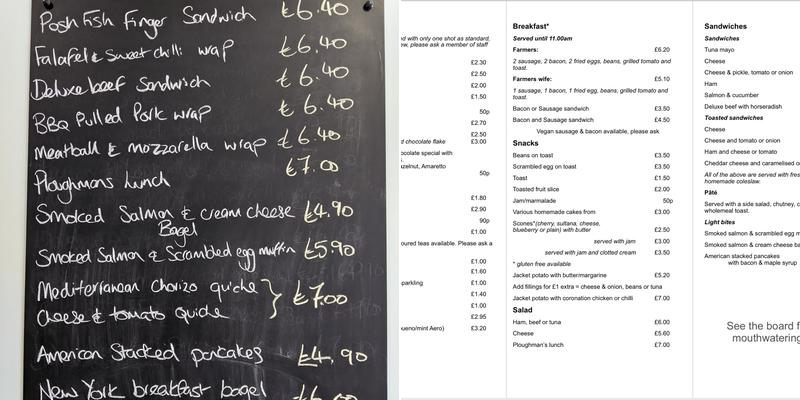 Posh Fish Finger Sandwich £6.40
Falafel & Sweet chilli wrap £6.40
Deluxe beef Sandwich £6.40
BBQ Pulled Pork wrap £6.40
Meatball & mozzarella wrap £6.40
Ploughmans Lunch £7.00
Smoked Salmon & cream cheese Bagel £4.90
Smoked Salmon & Scrambled egg muffin £5.90
Mediterranean Chorizo quiche
Cheese & tomato quiche } £7.00
American Stacked pancakes £4.90
New York breakfast bagel
d with only one shot as standard.
ew, please ask a member of staff
£2.30
£2.50
£2.00
£1.50
50p
£2.70
£2.50
d chocolate flake £3.00
ocolate special with
azelnut, Amaretto
50p
£1.80
£2.90
90p
£1.00
oured teas available. Please ask a
£1.00
£1.60
sparkling £1.00
£1.40
£1.00
£2.95
ueno/mint Aero) £3.20
Breakfast*
Served until 11.00am
Farmers: £6.20
2 sausage, 2 bacon, 2 fried eggs, beans, grilled tomato and
toast.
Farmers wife: £5.10
1 sausage, 1 bacon, 1 fried egg, beans, grilled tomato and
toast.
Bacon or Sausage sandwich £3.50
Bacon and Sausage sandwich £4.50
Vegan sausage & bacon available, please ask
Snacks
Beans on toast £3.50
Scrambled egg on toast £3.50
Toast £1.50
Toasted fruit slice £2.00
Jam/marmalade 50p
Various homemade cakes from £3.00
Scones*(cherry, sultana, cheese,
blueberry or plain) with butter £2.50
served with jam £3.00
served with jam and clotted cream £3.50
* gluten free available
Jacket potato with butter/margarine £5.20
Add fillings for £1 extra = cheese & onion, beans or tuna
Jacket potato with coronation chicken or chilli £7.00
Salad
Ham, beef or tuna £6.00
Cheese £5.60
Ploughman's lunch £7.00
Sandwiches
Sandwiches
Tuna mayo
Cheese
Cheese & pickle, tomato or onion
Ham
Salmon & cucumber
Deluxe beef with horseradish
Toasted sandwiches
Cheese
Cheese and tomato or onion
Ham and cheese or tomato
Cheddar cheese and caramelised o
All of the above are served with fres
homemade coleslaw.
Pâté
Served with a side salad, chutney, c
wholemeal toast.
Light bites
Smoked salmon & scrambled egg m
Smoked salmon & cream cheese ba
American stacked pancakes
with bacon & maple syrup
See the board f
mouthwatering